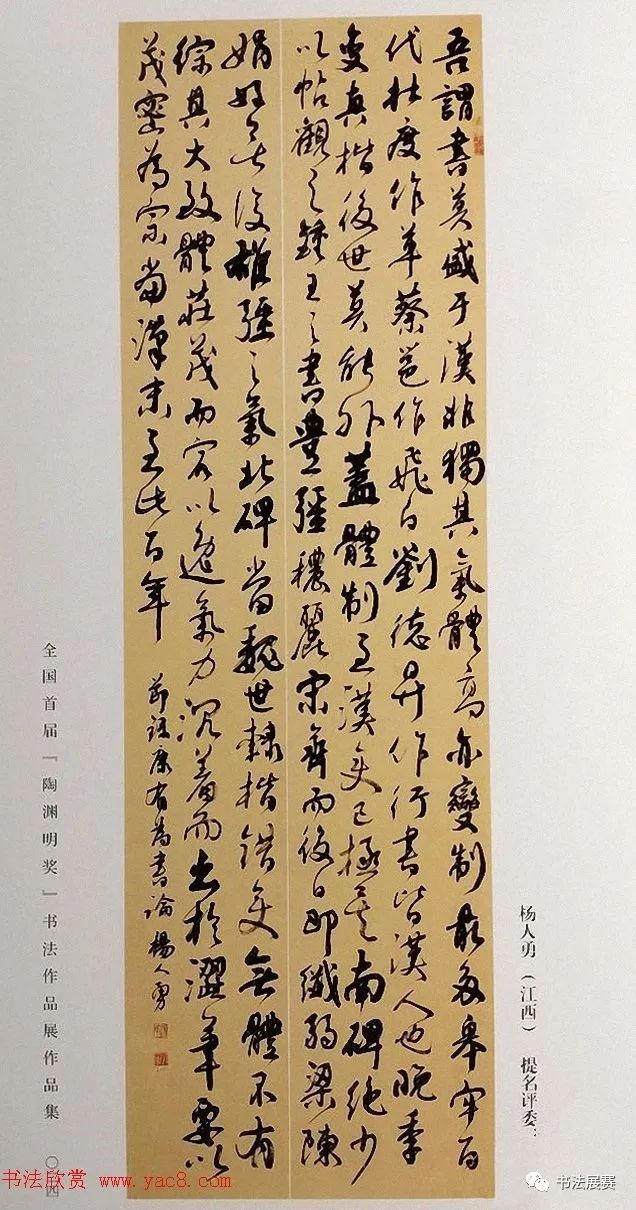 吾謂書莫盛于漢非獨其氣體高亦變制最多皋牢百
代杜度作草蔡邕作飛白劉德升作行書皆漢人也晚季
變真楷後世莫能外蓋體制至漢變已極矣南碑絕少
以帖觀之鍾王之書豊強穠麗宋齊而後日即纖弱梁陳
娟好無復雄強之氣北碑當魏世隸楷錯變無體不有
綜其大致體莊茂而宕以逸氣力沉着而出於澀筆要以
茂密為宗當漢末至此百年
節錄康有為書論 楊人勇
杨人勇（江西） 提名评委：
全国首届『陶渊明奖』书法作品展作品集 〇
书法欣赏 www.yac8.com
书法展赛